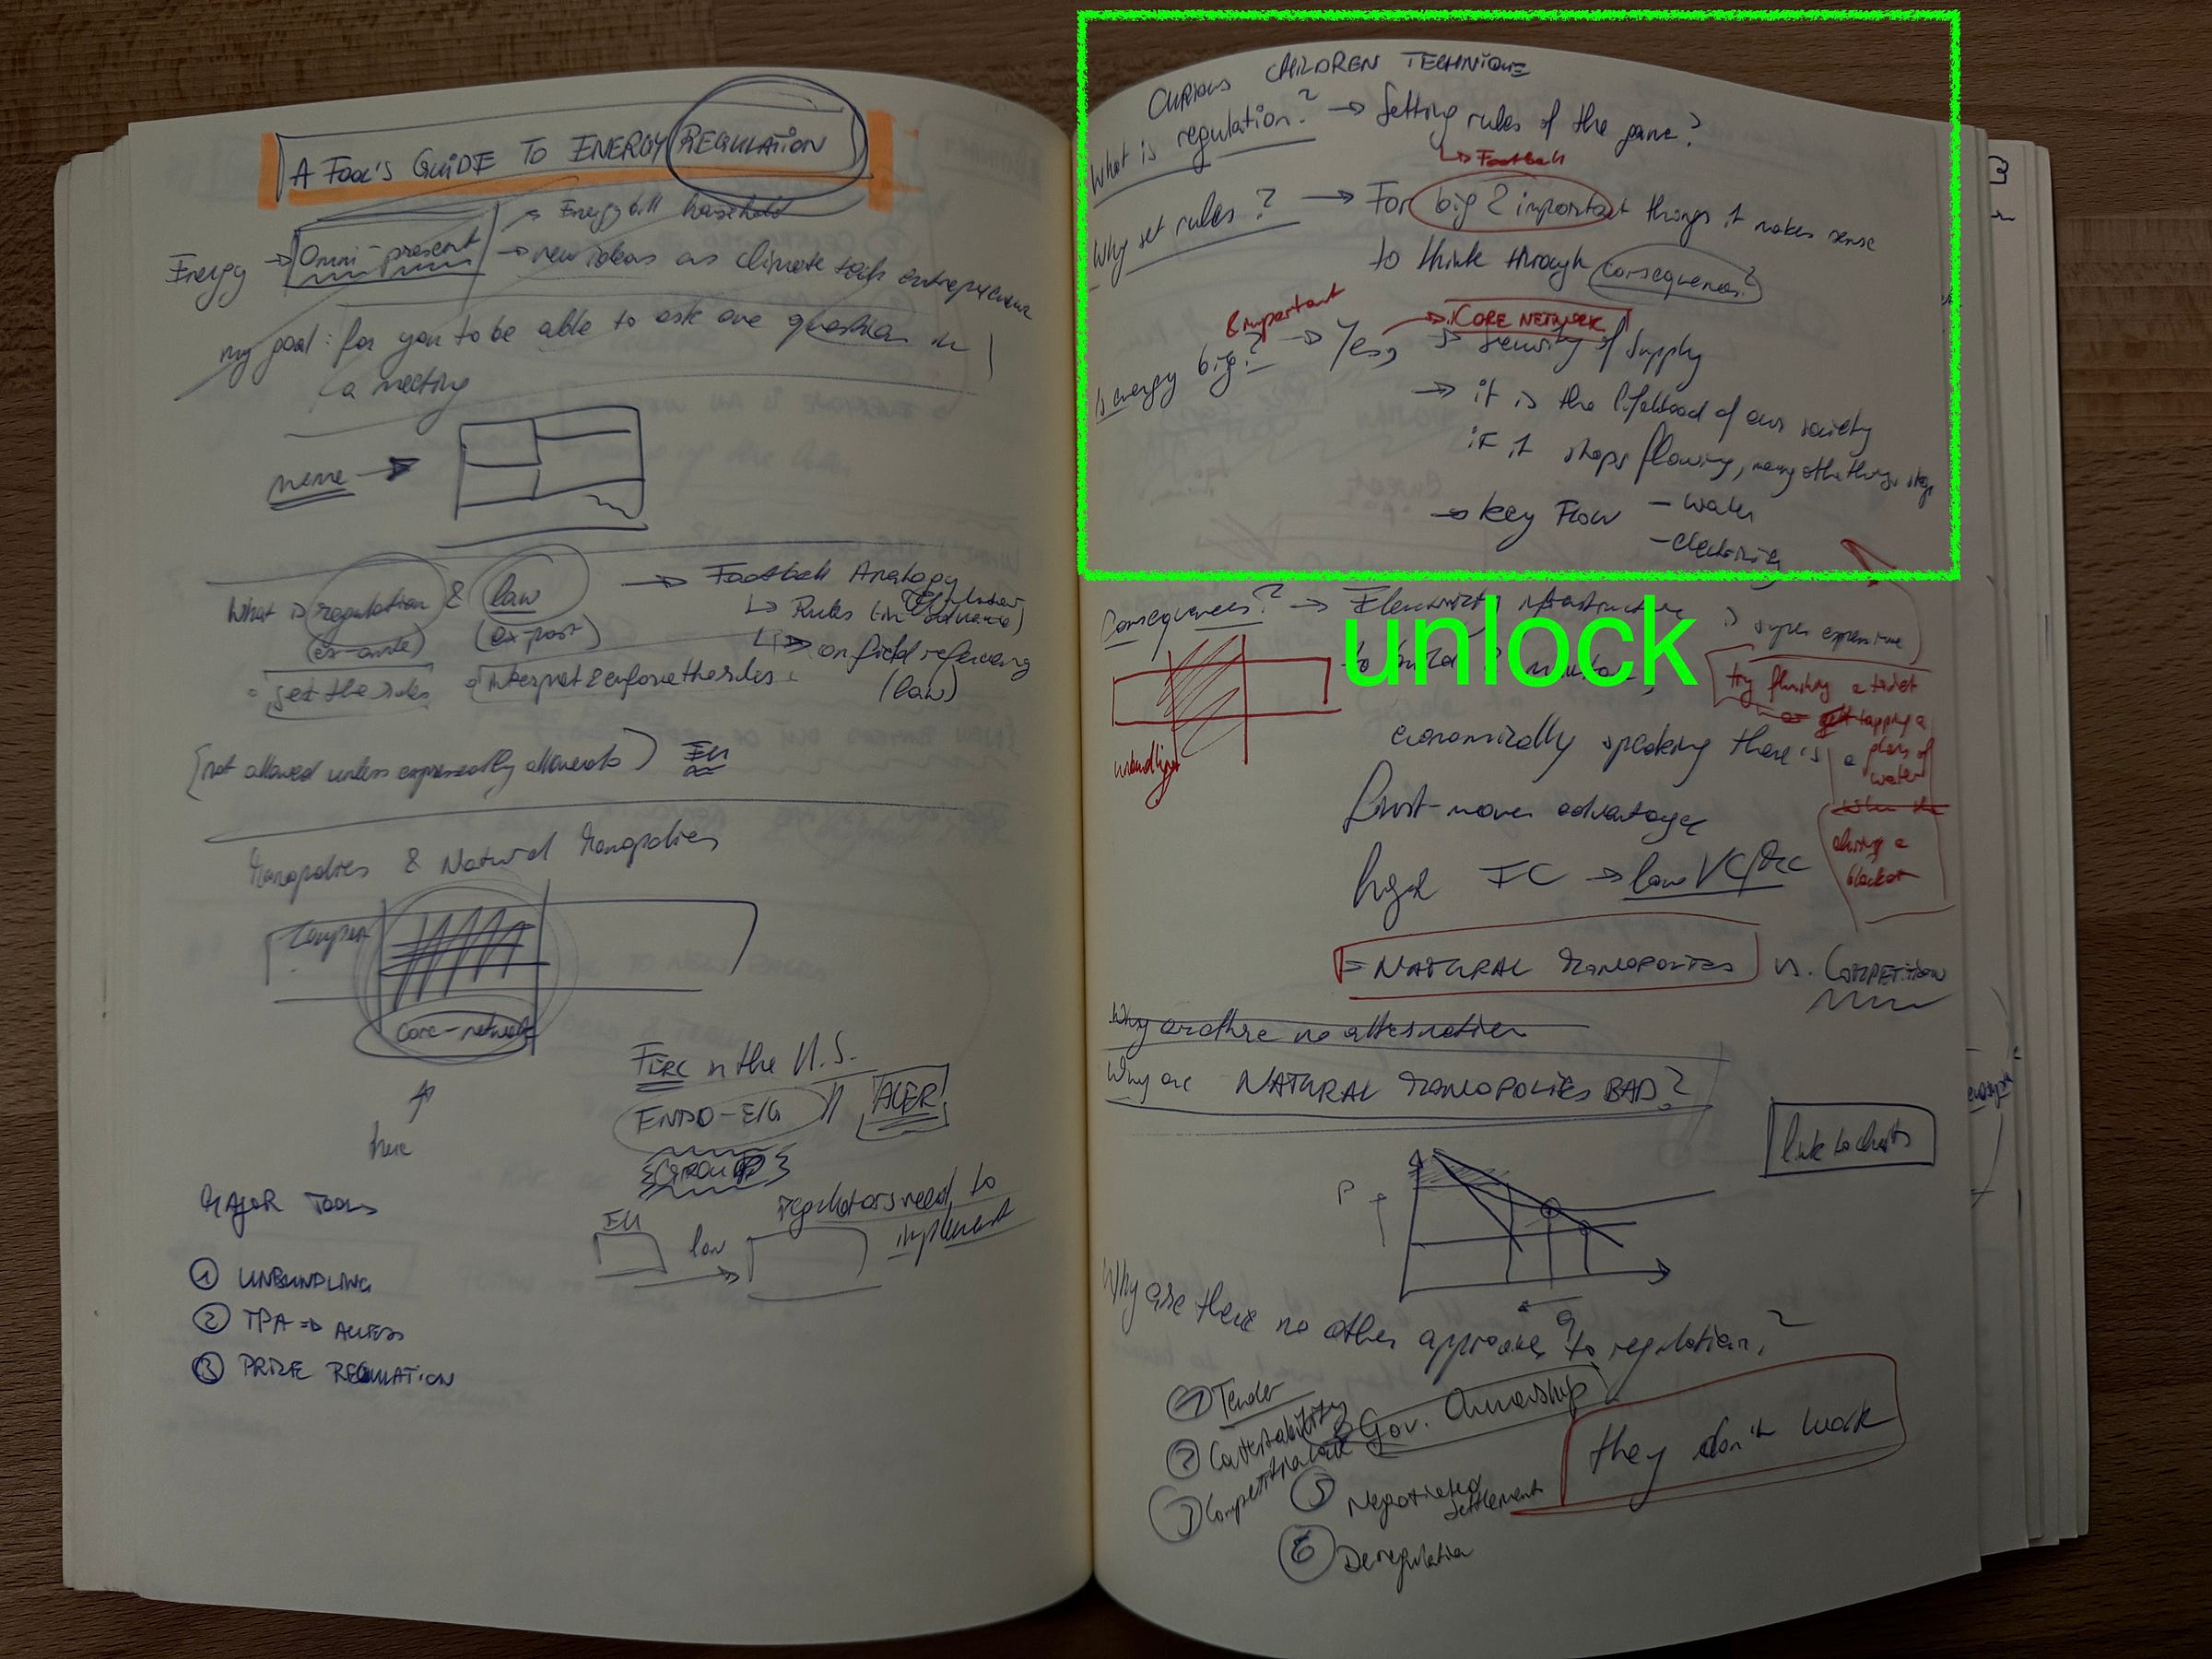 A FOOL'S GUIDE TO ENERGY REGULATION
→ Energy bill household
Energy → Omni-present → new ideas as climate tech entrepreneur
my goal: for you to be able to ask one question in
a meeting
meme →
What is regulation & law → Football Analogy
(ex-ante) (ex-post)
↳ Rules
↳ on field refereeing
(law)
set the rules interpret & enforce the rules
(not allowed unless expressedly allowed) EU
Monopolies & Natural Monopolies
core-network
here
FERC in the U.S.
ACER
GROUP
EU law regulators need to
implement
MAJOR TOOLS
① UNBUNDLING
② TPA ⇒ ACCESS
③ PRIZE REGULATION
CURIOUS CHILDREN TECHNIQUE
What is regulation? → Setting rules of the game?
↳ Football
Why set rules? → For big & important things it makes sense
to think through consequences?
& important
CORE NETWORK
Is energy big? → Yes, → Security of Supply
→ it is the lifeblood of our society
if it stops flowing, many other things stop
→ key Flow - water
- electricity
unlock
Consequences? → Electricity infrastructure is super expensive
to build
try flushing a toilet
or tapping a
glass of
water
during a
blackout
unbundling
economically speaking there is a
first-mover advantage
high FC → low VC
NATURAL MONOPOLIES vs. COMPETITION
Why are there no alternatives
Why are NATURAL MONOPOLIES BAD?
link to charts
P
q
Why are there no other approaches to regulation?
① Tender
② Contestability
Gov. Ownership
③
⑤ Negotiated
settlement
⑥ Deregulation
they don't work